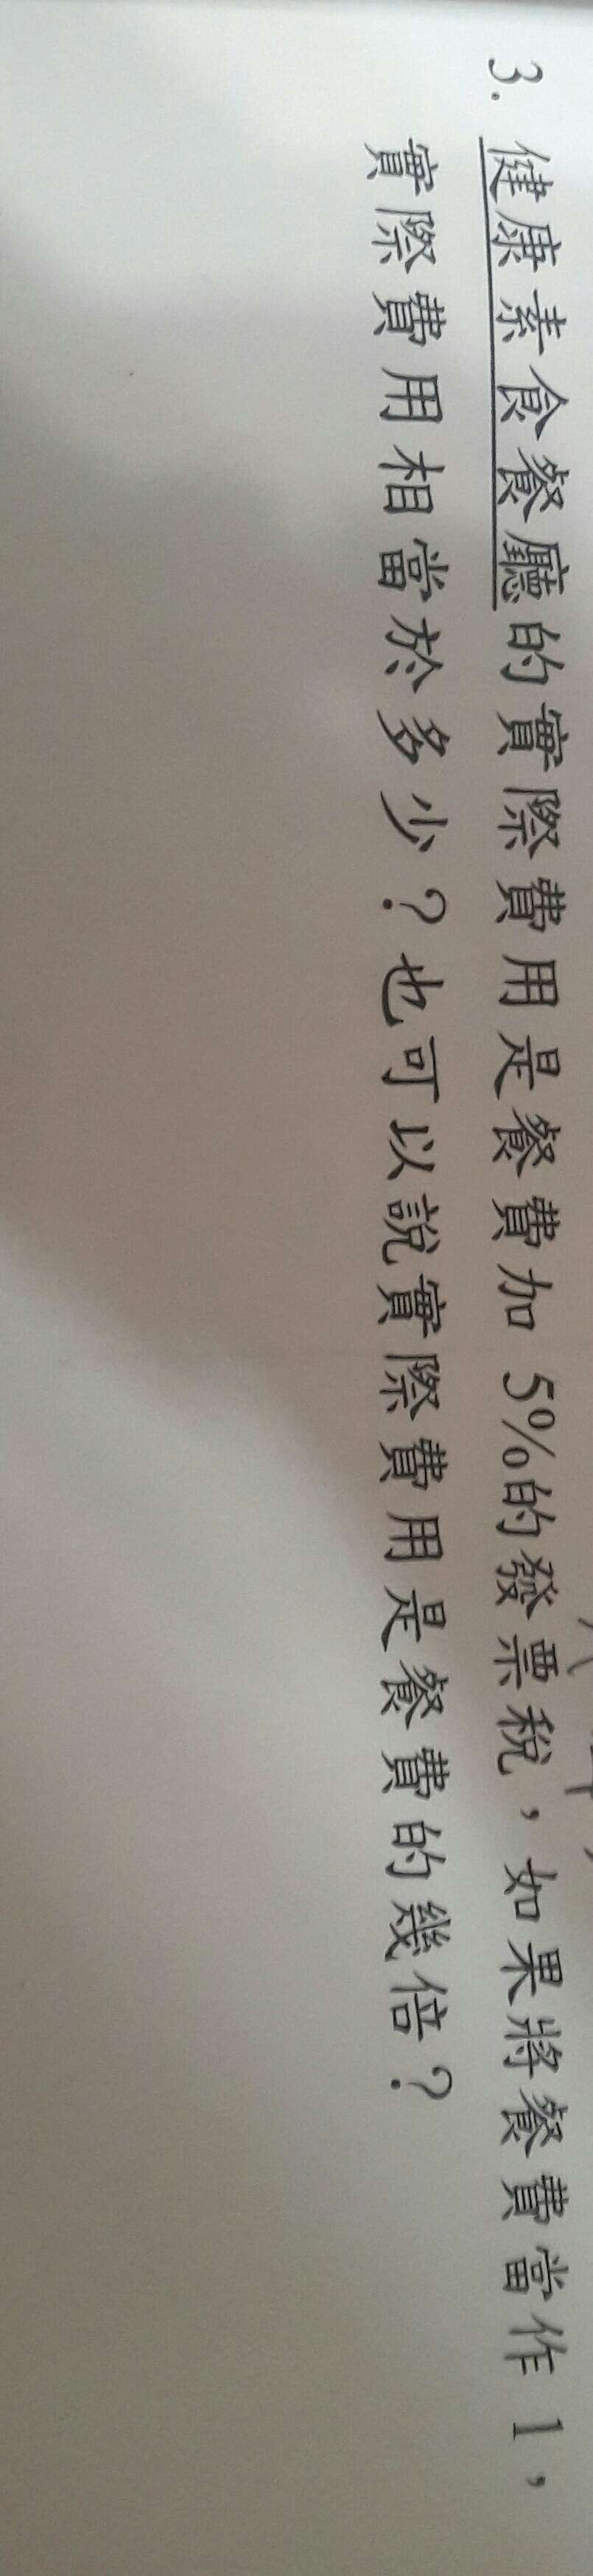 3. 健康素食餐廳的實際費用是餐費加 5%的發票稅，如果將餐費當作 1，
實際費用相當於多少？也可以說實際費用是餐費的幾倍？